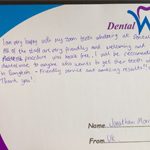 Dental W
I am very happy with my zoom teeth whitening at Dental
All of the staff are very friendly and welcoming and
questions you have free. I will be recommending
to anyone who wants to get their teeth
in - Friendly service and amazing results!!
Thank you!
Name: Jonathan
From: UK